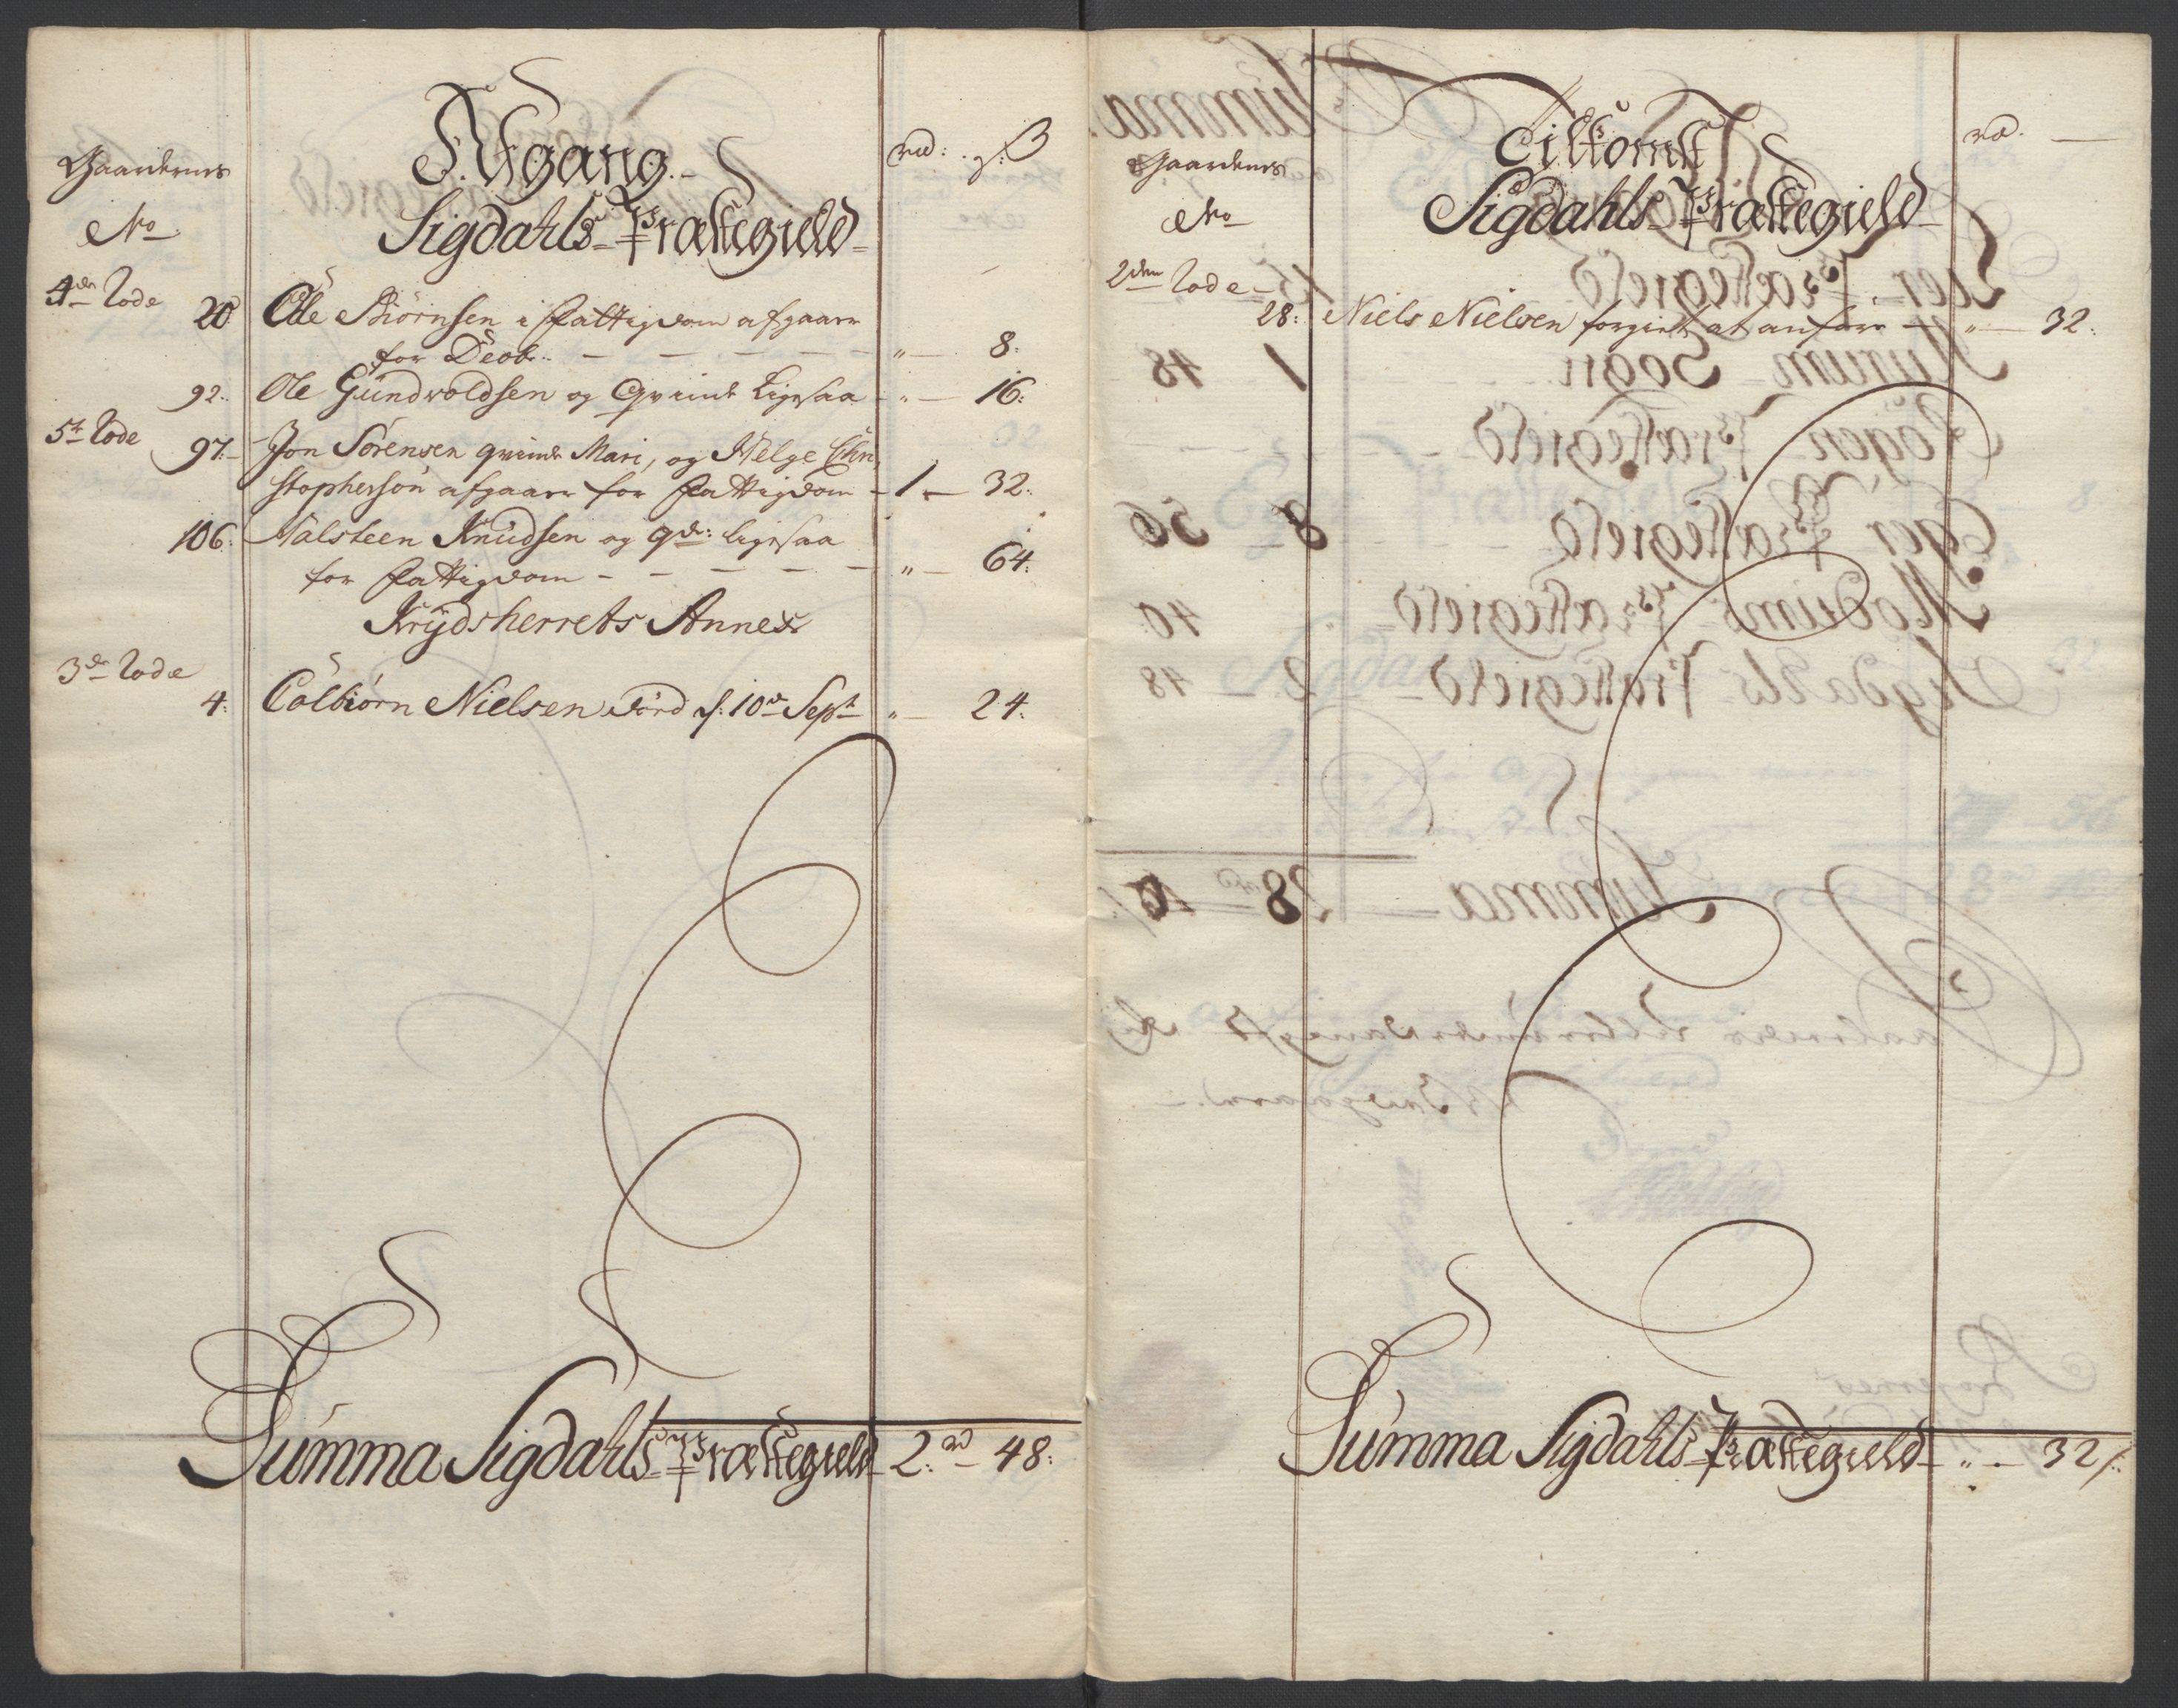 Gaardernes
No
Afgang
Sigdahls Præstegield
rd: ß
4de Rode
20 Ole Biörnsen i fattigdom afgaaer
for Deob. " 8:
92. Ole Gundvoldsen og Qvinde ligesaa " 16:
5te Rode
97. Jon Sörensen qvinde Mari, og Helge Chri
stophersön afgaaer for fattigdom 1 32:
106. Halsteen Knudsen og qde: ligesaa
for fattigdom " 64:
Krydsherrets Annex
3de Rode
4: Colbiörn Nielsen död d: 10de Sept " 24:
Summa Sigdahls Præstegield 2rd 48:
Gaardernes
No
Tilkomst
Sigdahls Præstegield
rd.
2den Rode
28: Niels Nielsen forgiet at anföre " 32:
Summa Sigdahls Præstegield " 32/: